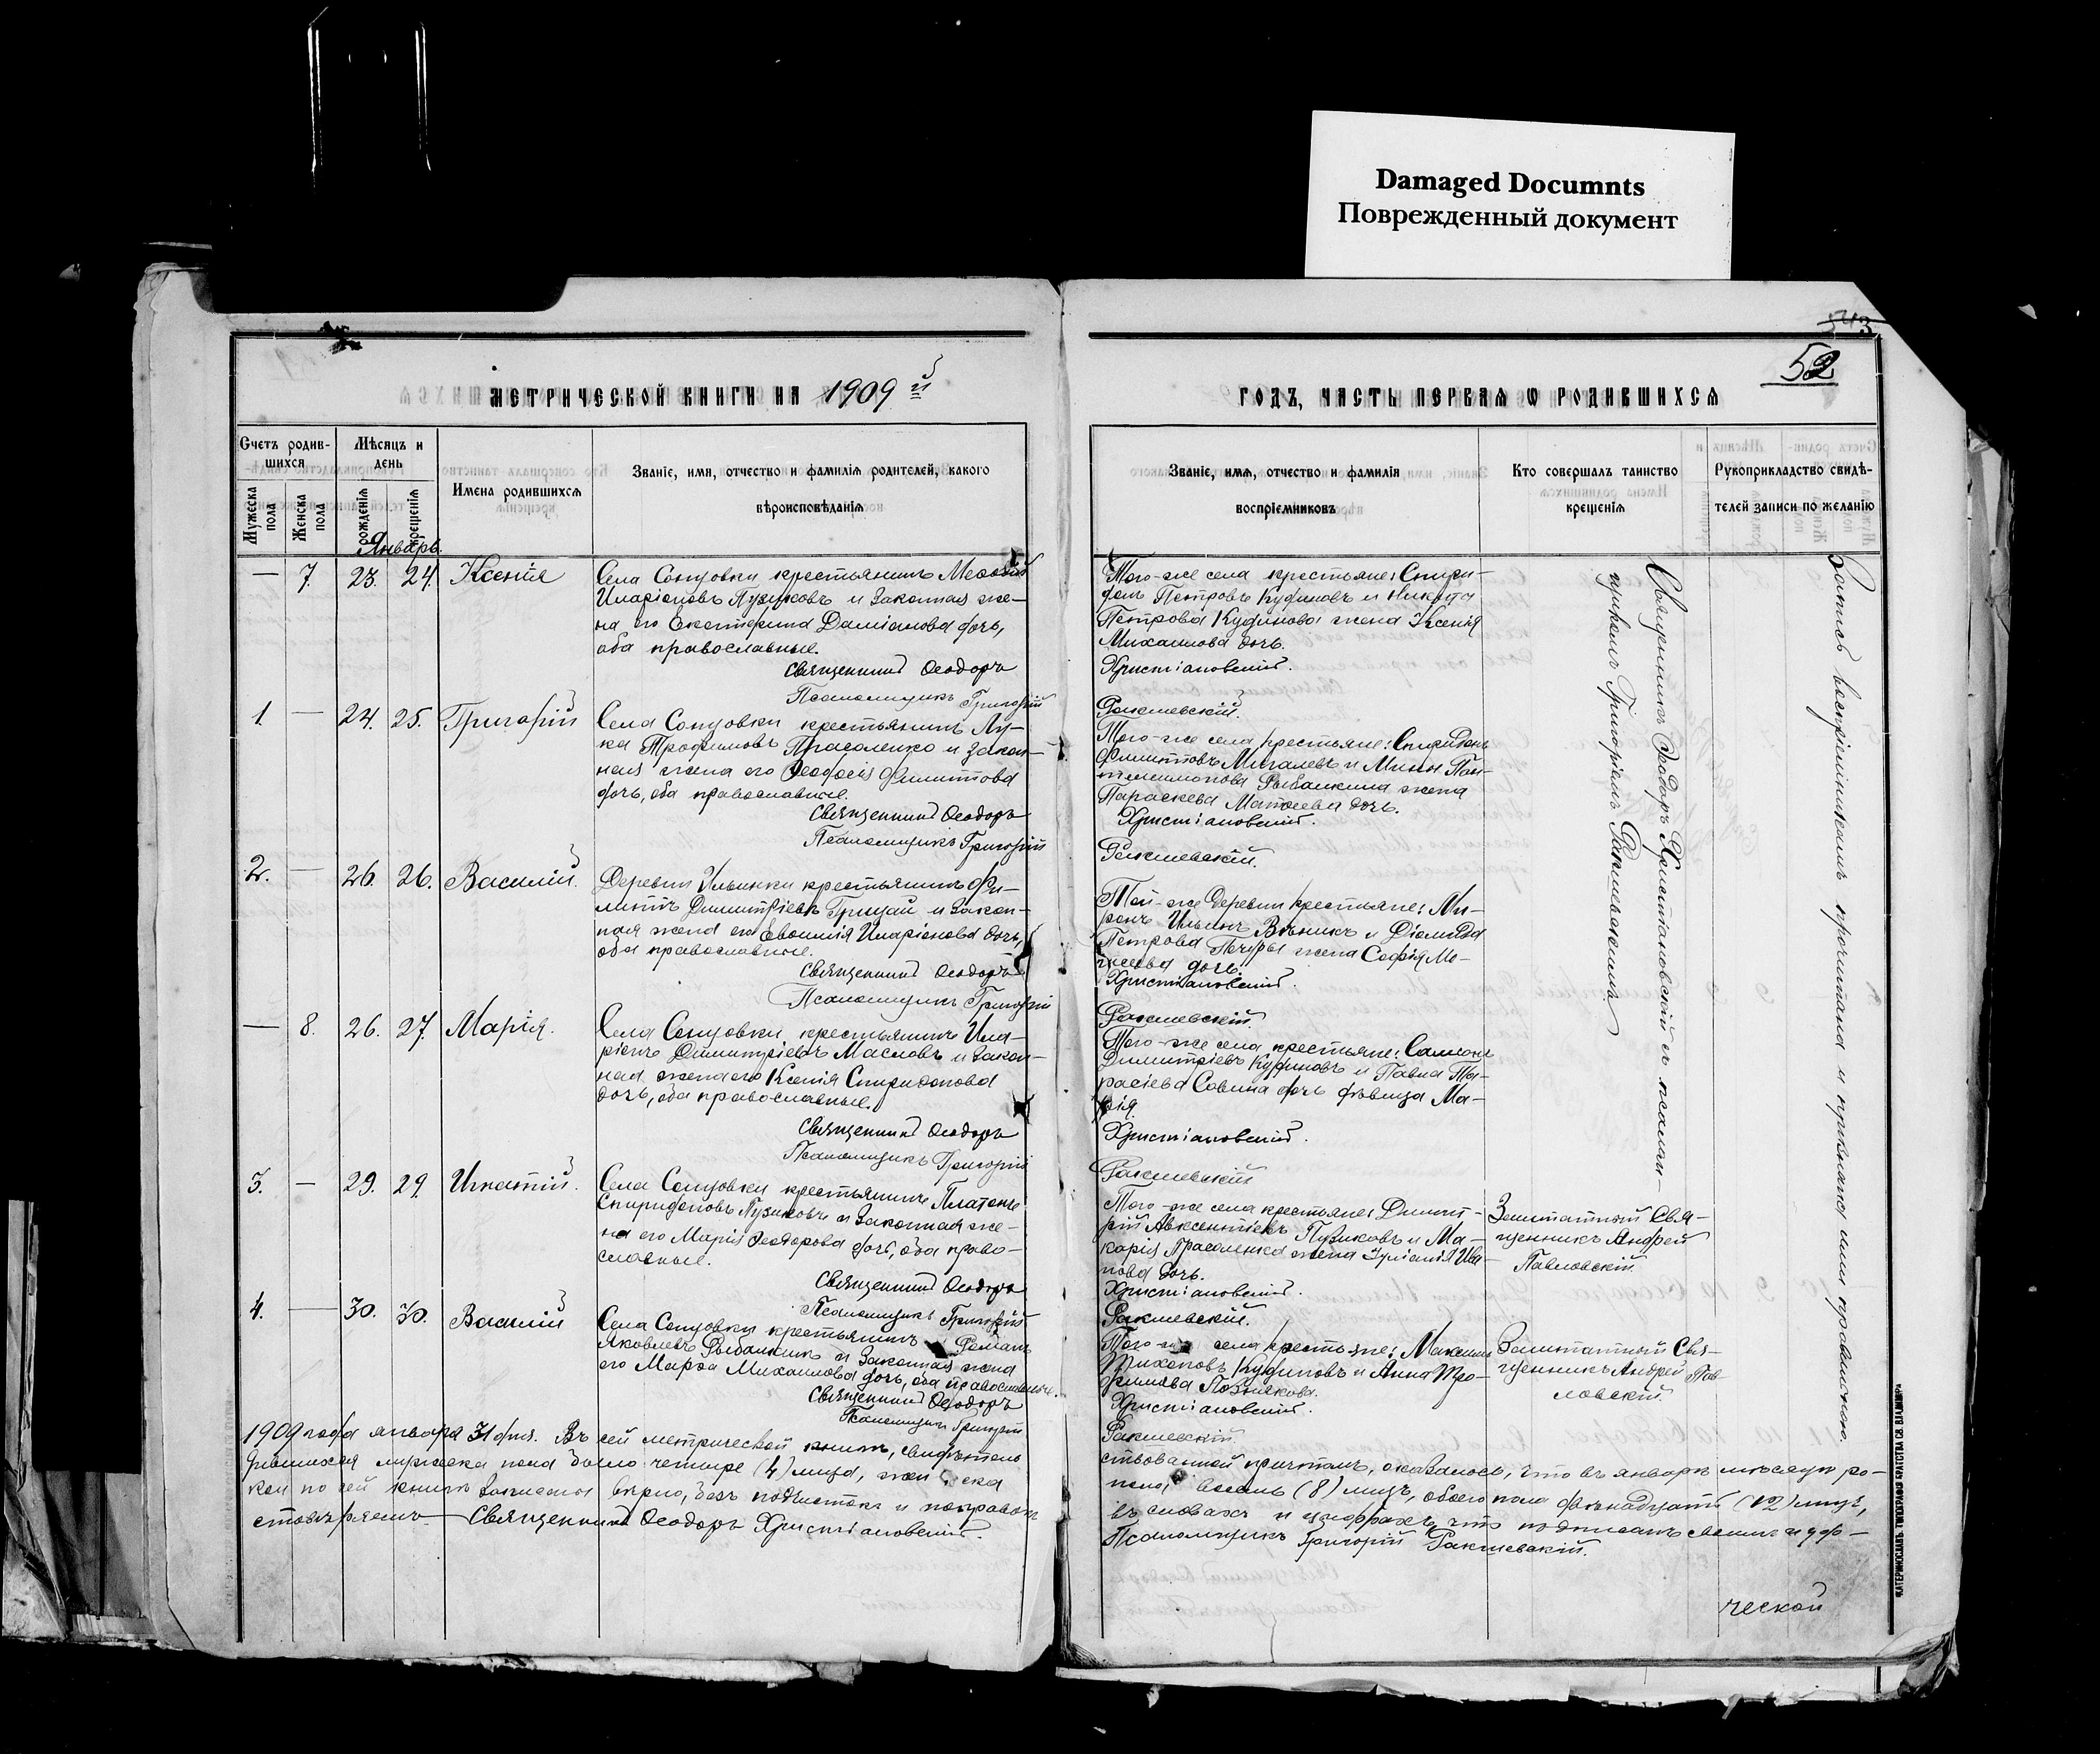 Damaged Documnts
Поврежденный документ
543
52
МЕТРИЧЕСКОЙ КНИГИ НА 1909 й
ГОДЪ, ЧАСТЬ ПЕРВАЯ О РОДИВШИХСЯ
Счетъ родив-
шихся
Мѣсяцъ и
день
Мужеска пола
Женска пола
рожденія
крещенія
Имена родившихся
Званіе, имя, отчество и фамилія родителей, какого
вѣроисповѣданія
Званіе, имя, отчество и фамилія
воспріемниковъ
Кто совершалъ таинство
крещенія
Рукоприкладство свидѣ-
телей записи по желанію
Январь.
— 7. 23. 24. Ксенія
Села Сонцовки крестьянинъ Меѳодій
Иларіоновъ Пузиковъ и законная же-
на его Екатерина Даміанова дочь,
оба православные.
Священникъ Ѳеодоръ
Псаломщикъ Григорій
Того-же села крестьяне: Спири-
донъ Петровъ Кудиновъ и Никиты
Петрова Кудинова жена Ксенія
Михаилова дочь.
Христіановскій.
Ракшевскій.
1. — 24. 25. Григорій
Села Сонцовки крестьянинъ Лу-
ка Трофимовъ Прасоленко и закон-
ная жена его Ѳеодосія Филиппова
дочь, оба православные.
Священникъ Ѳеодоръ
Псаломщикъ Григорій
Того-же села крестьяне: Спиридонъ
Филипповъ Мигалевъ и Мины Пан-
телеимонова Рыбалкина жена
Параскева Матѳеева дочь.
Христіановскій.
Ракшевскій.
2. — 26. 26. Василій.
Деревни Ильинки крестьянинъ Фи-
липпъ Димитріевъ Грицай и закон-
ная жена его Евѳимія Иларіонова дочь,
оба православные.
Священникъ Ѳеодоръ
Псаломщикъ Григорій
Той-же деревни крестьяне: Ми-
ронъ Ильинъ и Діомида
Петрова жена Софія Мо-
исеева дочь.
Христіановскій.
Ракшевскій.
— 8. 26. 27. Марія.
Села Сонцовки крестьянинъ Ила-
ріонъ Димитріевъ Масловъ и закон-
ная жена его Ксенія Спиридонова
дочь, оба православные.
Священникъ Ѳеодоръ
Псаломщикъ Григорій
Того-же села крестьяне: Самсонъ
Димитріевъ Кудиновъ и Павла Та-
расіева Савина дочь дѣвица Ма-
рія.
Христіановскій.
Ракшевскій
3. — 29. 29. Игнатій.
Села Сонцовки крестьянинъ Платонъ
Спиридоновъ Пузиковъ и законная же-
на его Марія Ѳеодорова дочь, оба право-
славные.
Священникъ Ѳеодоръ
Псаломщикъ Григорій
Того-же села крестьяне: Димит-
рій Авксентіевъ Пузиковъ и Ма-
карія Прасоленка жена Іуліанія Ива-
нова дочь.
Христіановскій.
Ракшевскій.
Заштатный Свя-
щенникъ Андрей
Павловскій.
4. — 30. 30. Василій
Села Сонцовки крестьянинъ Романъ
Яковлевъ Рыбалкинъ и законная жена
его Марѳа Михаилова дочь, оба православные.
Священникъ Ѳеодоръ
Псаломщикъ Григорій
Того-же села крестьяне: Максимъ
Тихоновъ Кудиновъ и Анна Тро-
фимова Познякова.
Христіановскій.
Ракшевскій.
Заштатный Свя-
щенникъ Андрей Пав-
ловскій.
Священникъ Ѳеодоръ Христіановскій съ псалом-
щикомъ Григоріемъ Ракшевскимъ.
Запись воспріемникамъ прочитана и признана ими правильною.
1909 года января 31 дня. Въ сей метрической книгѣ, свидѣтель-
ствованной причтомъ, оказалось, что въ январѣ мѣсяцѣ ро-
дившихся мужеска пола было четыре (4) лица, женска
пола, восемь (8) лицъ, обоего пола двѣнадцать (12) лицъ,
кои по сей книгѣ записаны вѣрно, безъ подчистокъ и поправокъ
въ словахъ и цифрахъ, что подписомъ своимъ и удо-
стовѣряемъ. Священникъ Ѳеодоръ Христіановскій.
Псаломщикъ Григорій Ракшевскій.
ческой
ЕКАТЕРИНОСЛАВЪ. ТИПОГРАФІЯ БРАТСТВА СВ. ВЛАДИМІРА